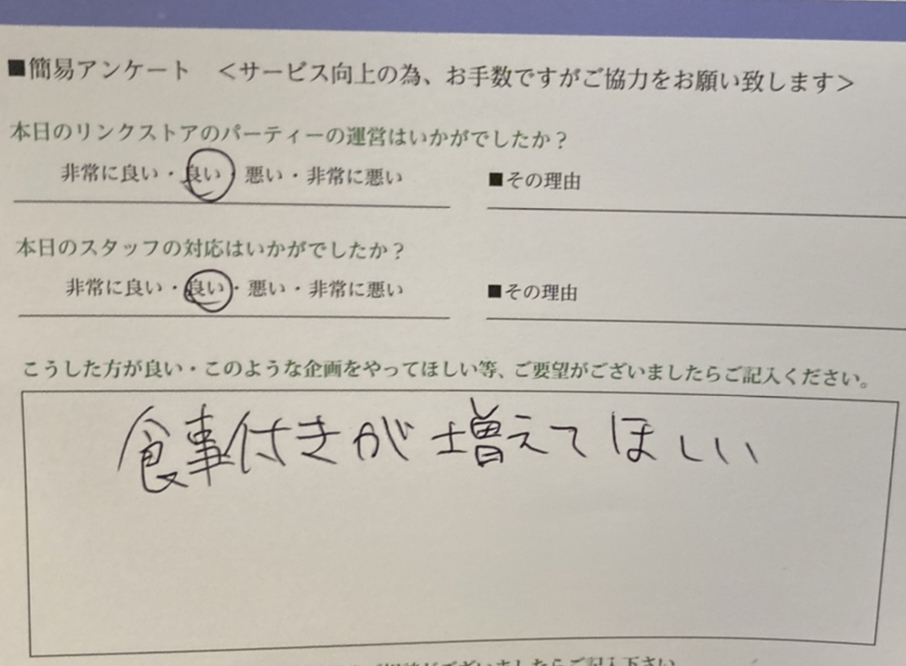 ■簡易アンケート <サービス向上の為、お手数ですがご協力をお願い致します>
本日のリンクストアのパーティーの運営はいかがでしたか?
非常に良い・良い・悪い・非常に悪い ■その理由
本日のスタッフの対応はいかがでしたか?
非常に良い・良い・悪い・非常に悪い ■その理由
こうした方が良い・このような企画をやってほしい等、ご要望がございましたらご記入ください。
食事付きが増えてほしい
ございましたらご記入下さい